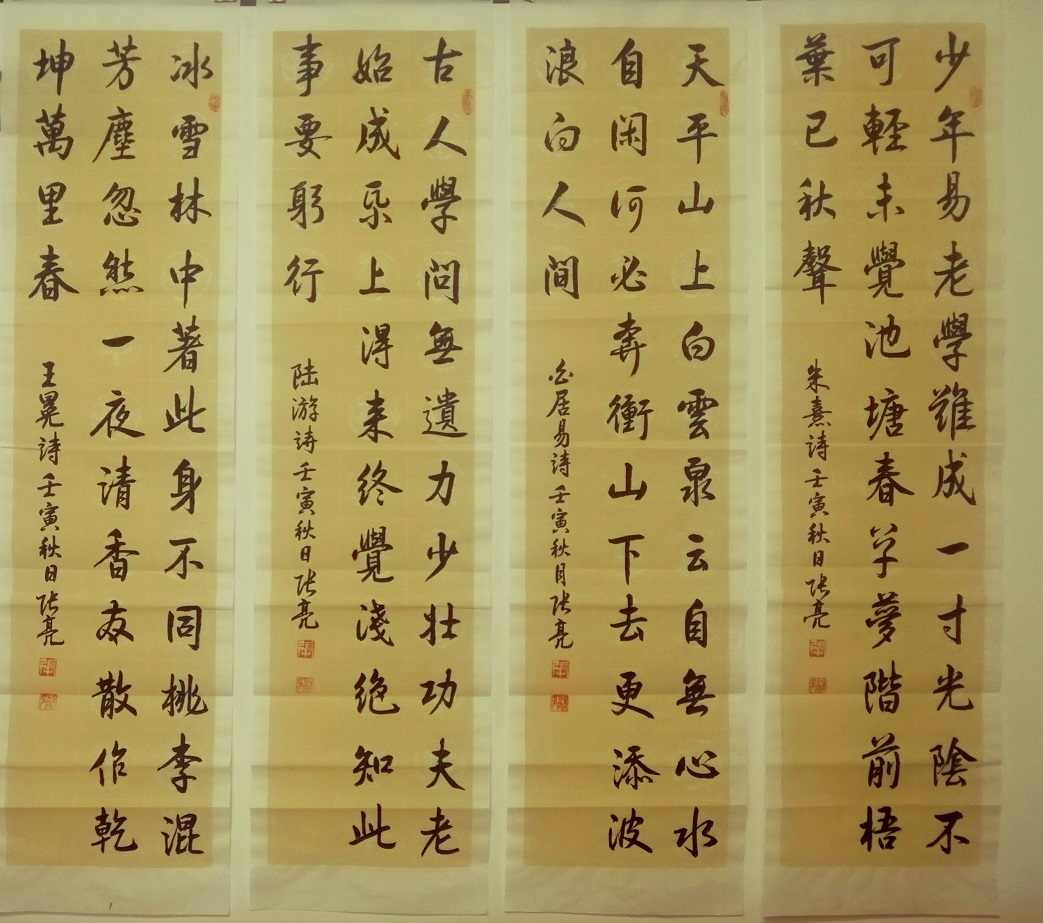 少年易老學難成一寸光陰不
可輕未覺池塘春草夢階前梧
葉已秋聲
朱熹诗壬寅秋日张亮
天平山上白雲泉云自無心水
自闲何必奔衝山下去更添波
浪向人間
白居易诗壬寅秋月张亮
古人學問無遺力少壮功夫老
始成紙上得来终覺淺绝知此
事要躬行
陆游诗壬寅秋日张亮
冰雪林中著此身不同桃李混
芳塵忽然一夜清香发散作乾
坤萬里春
王冕诗壬寅秋日张亮